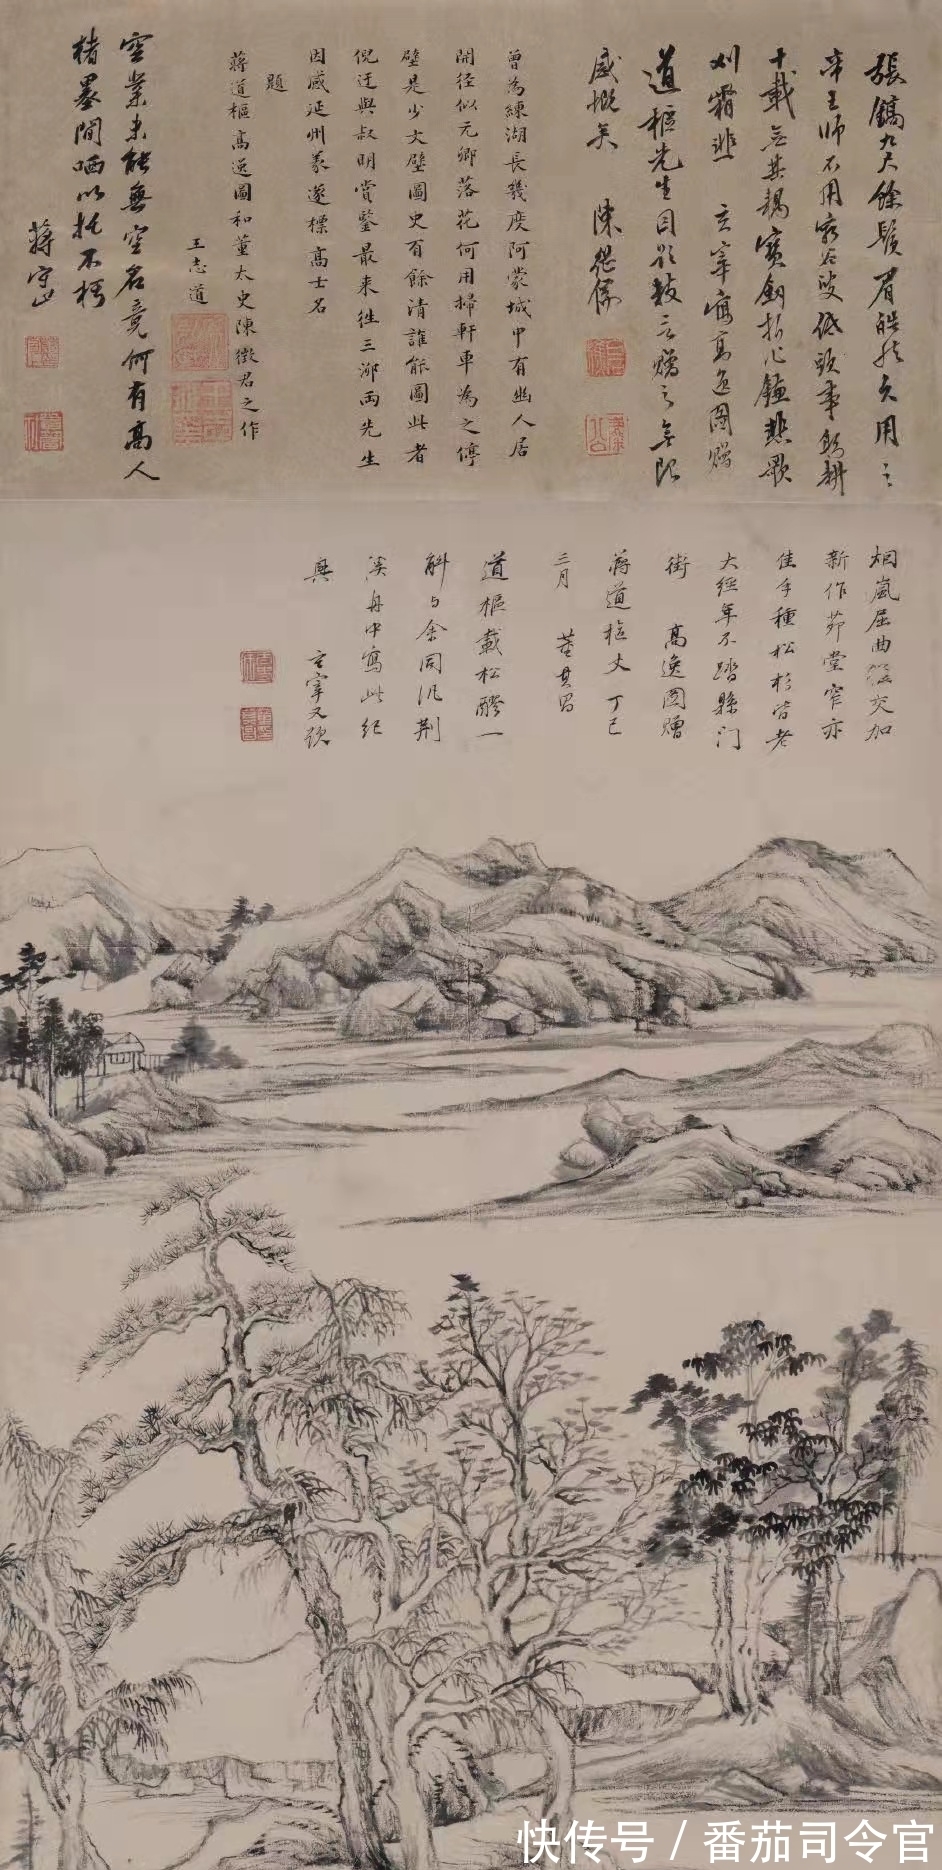 張鎬九尺餘鬚眉皓然久用之
帝王師不用窮谷叟低頭事躬耕
十載無其耦寶劍折心鐮悲歌
刈霜韭 玄宰寫高逸圖贈
道樞先生因題數言贈之無限
感慨矣 陳繼儒
曾為練湖長幾度阿蒙城中有幽人居
開径似元卿落花何用掃軒車為之停
壁是少文壁圖史百餘清誰能圖此者
倪迂與叔明賞鑒最来往三泖両先生
因感延州義遂標高士名
題
蔣道樞高逸圖和董太史陳徵君之作
王志道
空業未能無空名竟何有高人
楮墨間哂以托不朽
蔣守止
烟嵐屈曲径交加
新作茆堂窄亦
佳手種松杉皆老
大經年不踏縣門
街 高逸圖贈
蔣道樞丈 丁巳
三月 董其昌
道樞載松醪一
斛与余同汎荆
溪舟中寫此紀
興 玄宰又題
快传号 / 番茄司令官